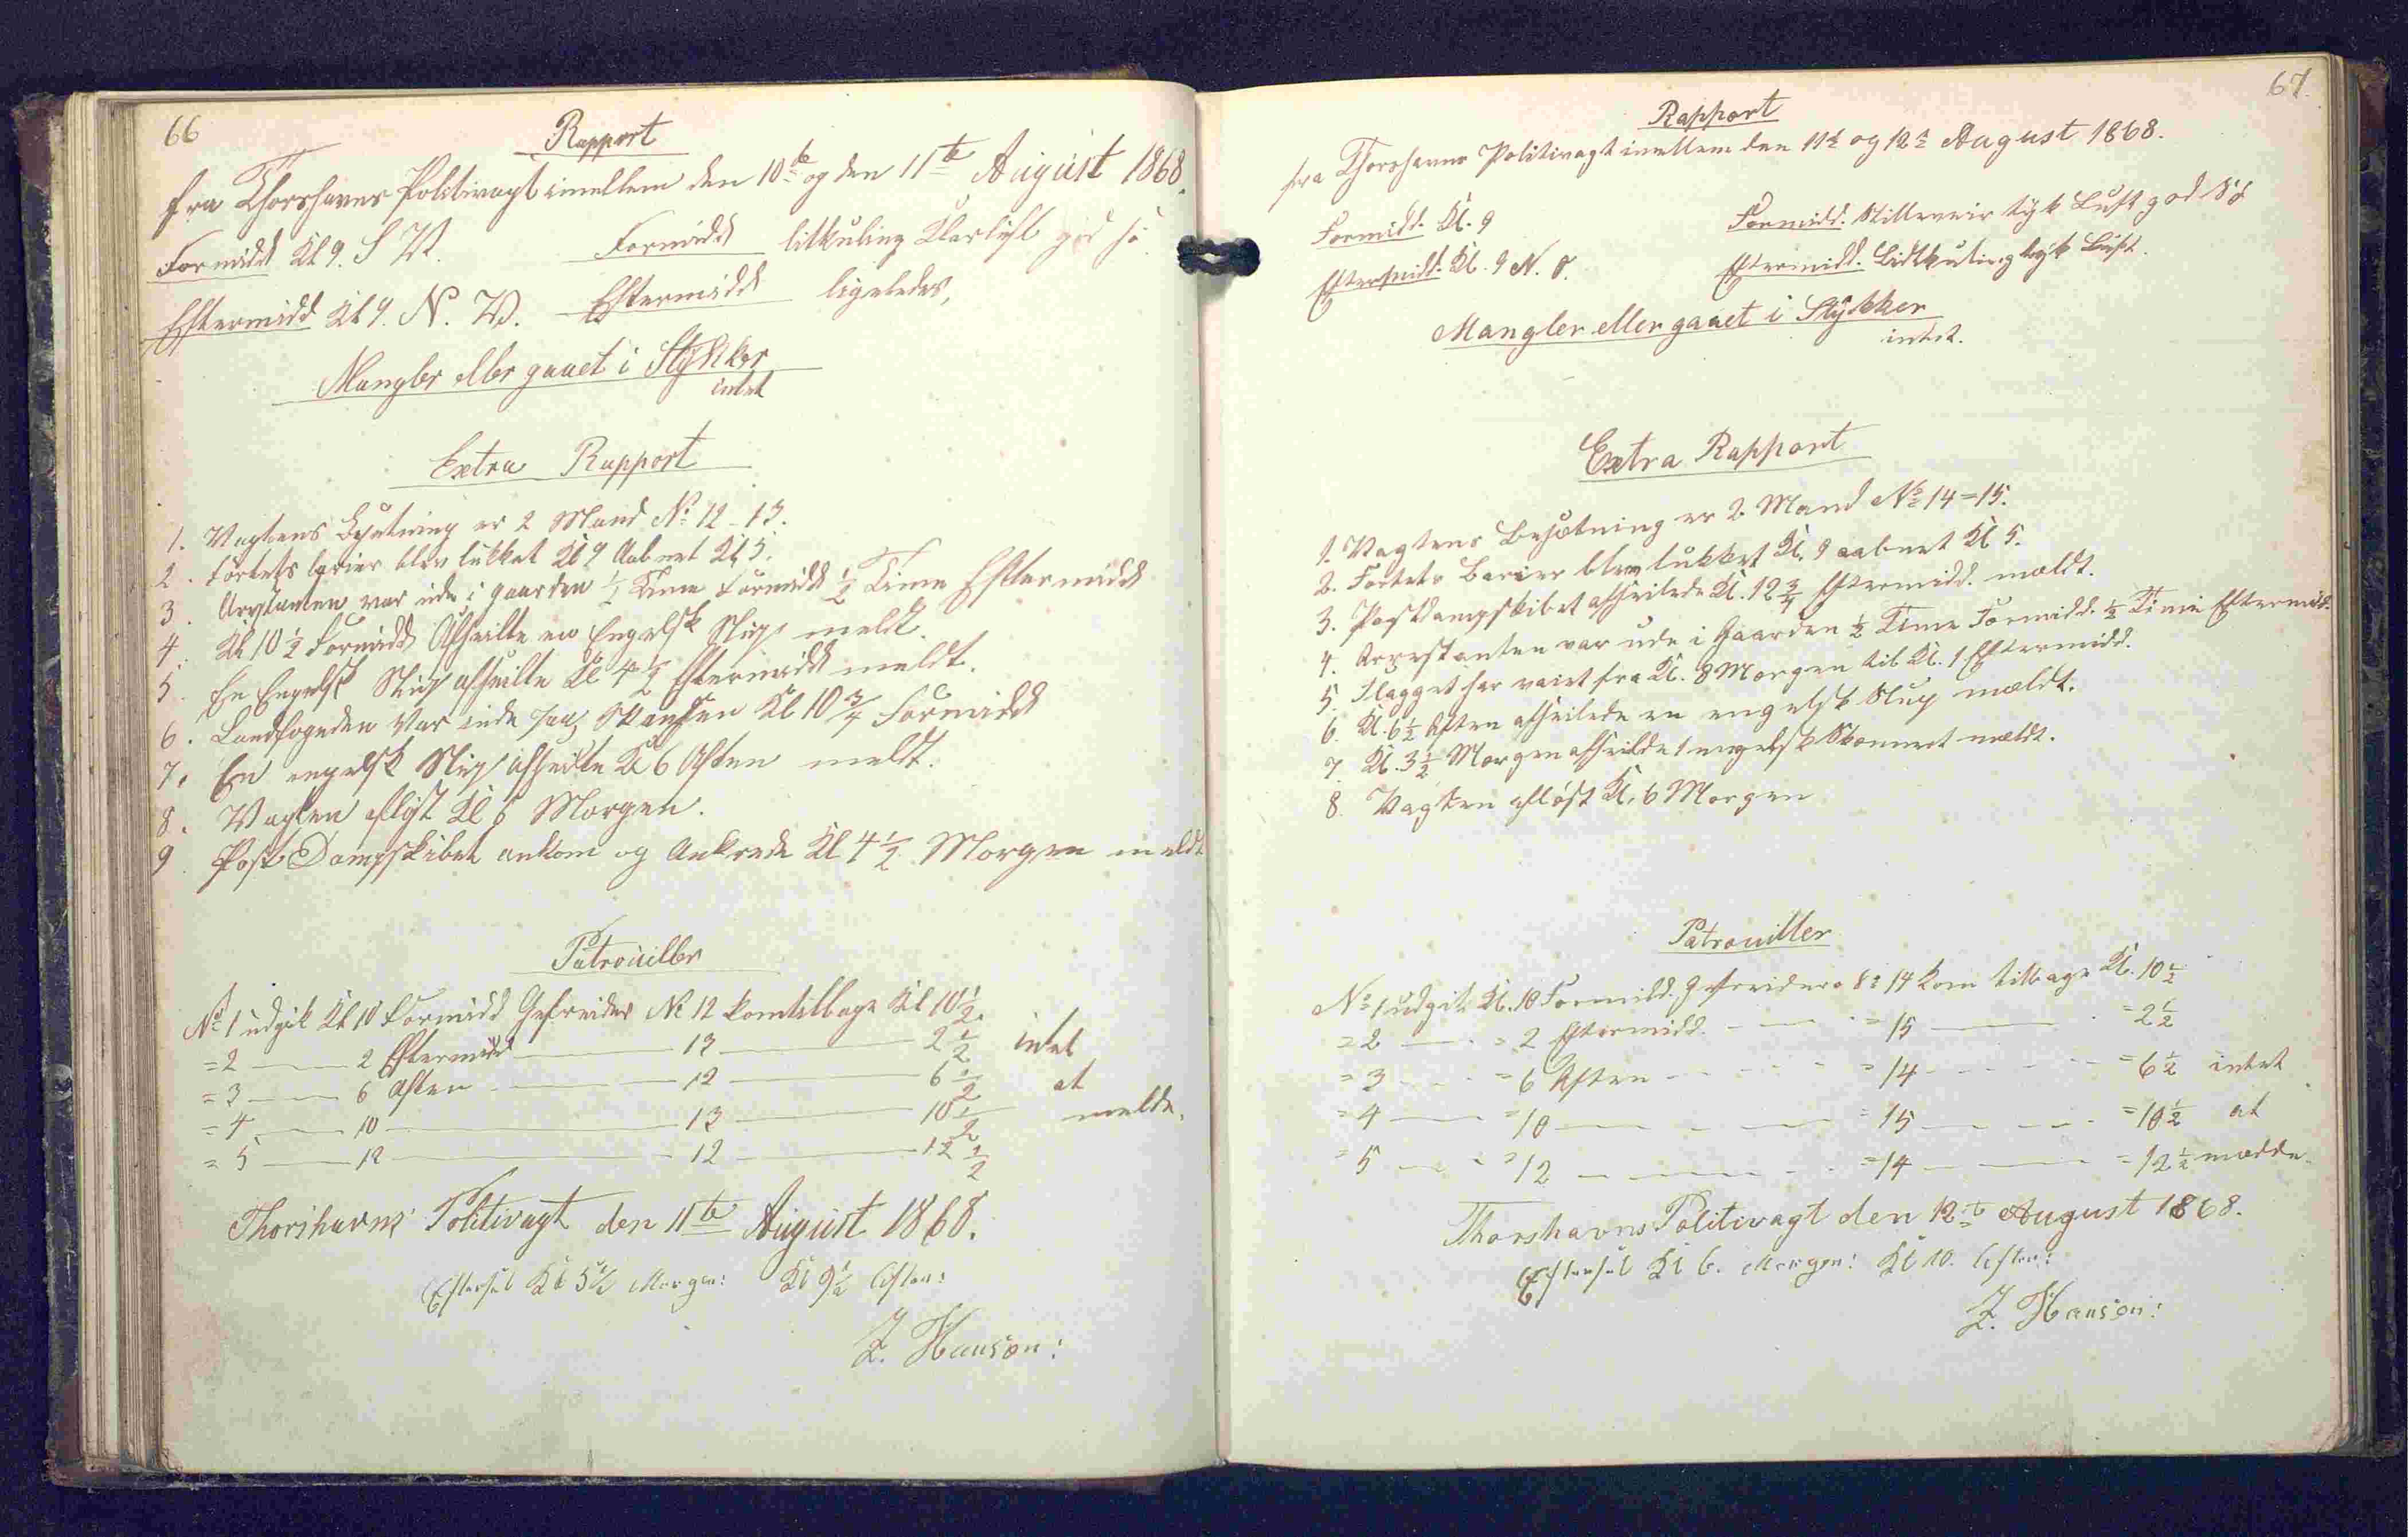 66
Rapport
fra Thorshavns Politivagt imellem den 10de og den 11te August 1868.
Formidd Kl 9. S V. Formidd litkuling Klarluft god sö
Eftermidd Kl 9. N. V. Eftermidd ligeledes,
Mangler eller gaaet i Stÿkker
intet
Extra Rapport
1. Vagtens Besætning er 2 Mand No 12 - 13.
2. Fortets barier blev lukket Kl 9 Aabnet Kl 5.
3. Arestanten var ude i gaarden ½ Time Formidd ½ Time Eftermidd
4. Kl 10 ½ Formidd Afseilte en Engelsk Slup meldt.
5. En Engelsk Slup afseilte Kl 4 ½ Eftermidd meldt.
6. Landfogeden Var inde paa Skandsen Kl 10 ¾ Formidd
7. En engelsk Slup afseilte Kl 6 Aften meldt.
8. Vagten afløst Kl 6 Morgen.
9 Post Dampskibet ankom og Ankrede Kl 4 ½ Morgen meldt
Patrouiller
No 1 udgik Kl 10 Formidd Gefreider No 12 kom tilbage Kl 10 ½.
= 2 — 2 Eftermidd — 13 — 2 ½ intet
= 3 — 6 Aften — 12 — 6 ½ at
= 4 — 10 — 13 — 10 ½ melde.
= 5 — 12 — 12 — 12 ½
Thorshavns Politivagt den 11te August 1868.
Eftersét Kl 5½ Morgen: Kl 9½ Aften:
Z. Hanson:
67.
Rapport
fra Thorshavns Politivagt imellem den 11te og 12te August 1868.
Formidd. Kl. 9 Formidd. Stilleveir tyk Luft god Sö
Eftermidd. Kl. 9 N. O. Eftermidd. Lidtkuling tyk Luft.
Mangler eller gaaet i Stÿkker
intet.
Extra Rapport
1. Vagtens Besætning er 2 Mand No 14 = 15.
2. Fortets Barier blev lukket Kl. 9 aabnet Kl 5.
3. Postdampskibet afseilede Kl. 12 ¾ Eftermidd. mældt.
4. Arrestanten var ude i Gaarden ½ Time Formidd. ½ Time Eftermidd.
5. Flagget har vaiet fra Kl. 8 Morgen til Kl. 1 Eftermidd.
6. Kl. 6 ½ Aften afseilede en engelsk Slup mældt.
7 Kl. 3 ½ Morgen afseilde 1 engelsk Skonnert mældt.
8. Vagten afløst Kl. 6 Morgen
Patrouiller
No 1 udgik Kl. 10 Formidd. Gefreidere No 14 kom tilbage Kl. 10 ½
= 2 — = 2 Eftermidd. — = 15 — = 2 ½
= 3 — = 6 Aften — = 14 — = 6 ½ intet
= 4 — = 10 — = 15 — = 10 ½ at
= 5 — = 12 — = 14 — = 12 ½ mælde.
Thorshavns Politivagt den 12te August 1868.
Eftersét Kl 6. Morgen: Kl 10. Aften:
Z. Hanson: